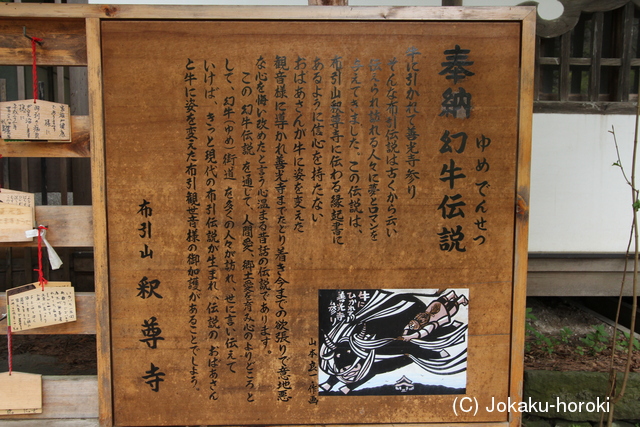 奉納 幻牛伝説
ゆめでんせつ
牛に引かれて善光寺参り
そんな布引伝説は古くから云い
伝えられ訪れる人々に夢とロマンを
与えてきました。この伝説は、
布引山釈尊寺に伝わる縁起書に
あるように信心を持たない
おばあさんが牛に姿を変えた
観音様に導かれ善光寺までたどり着き今までの欲張りで意地悪
な心を悔い改めたと言う心温まる昔話の伝説であります。
この幻牛伝説を通して、人間愛、郷土愛を育み心のよりどころと
して、幻牛(ゆめ)街道を多くの人々が訪れ、世に言い伝えて
いけば、きっと現代の布引伝説が生まれ、伝説のおばあさん
と牛に姿を変えた布引観世音様の御加護があることでしょう。
布引山 釈尊寺
牛に
ひかれて
善光寺
参り
(C) Jokaku-horoki